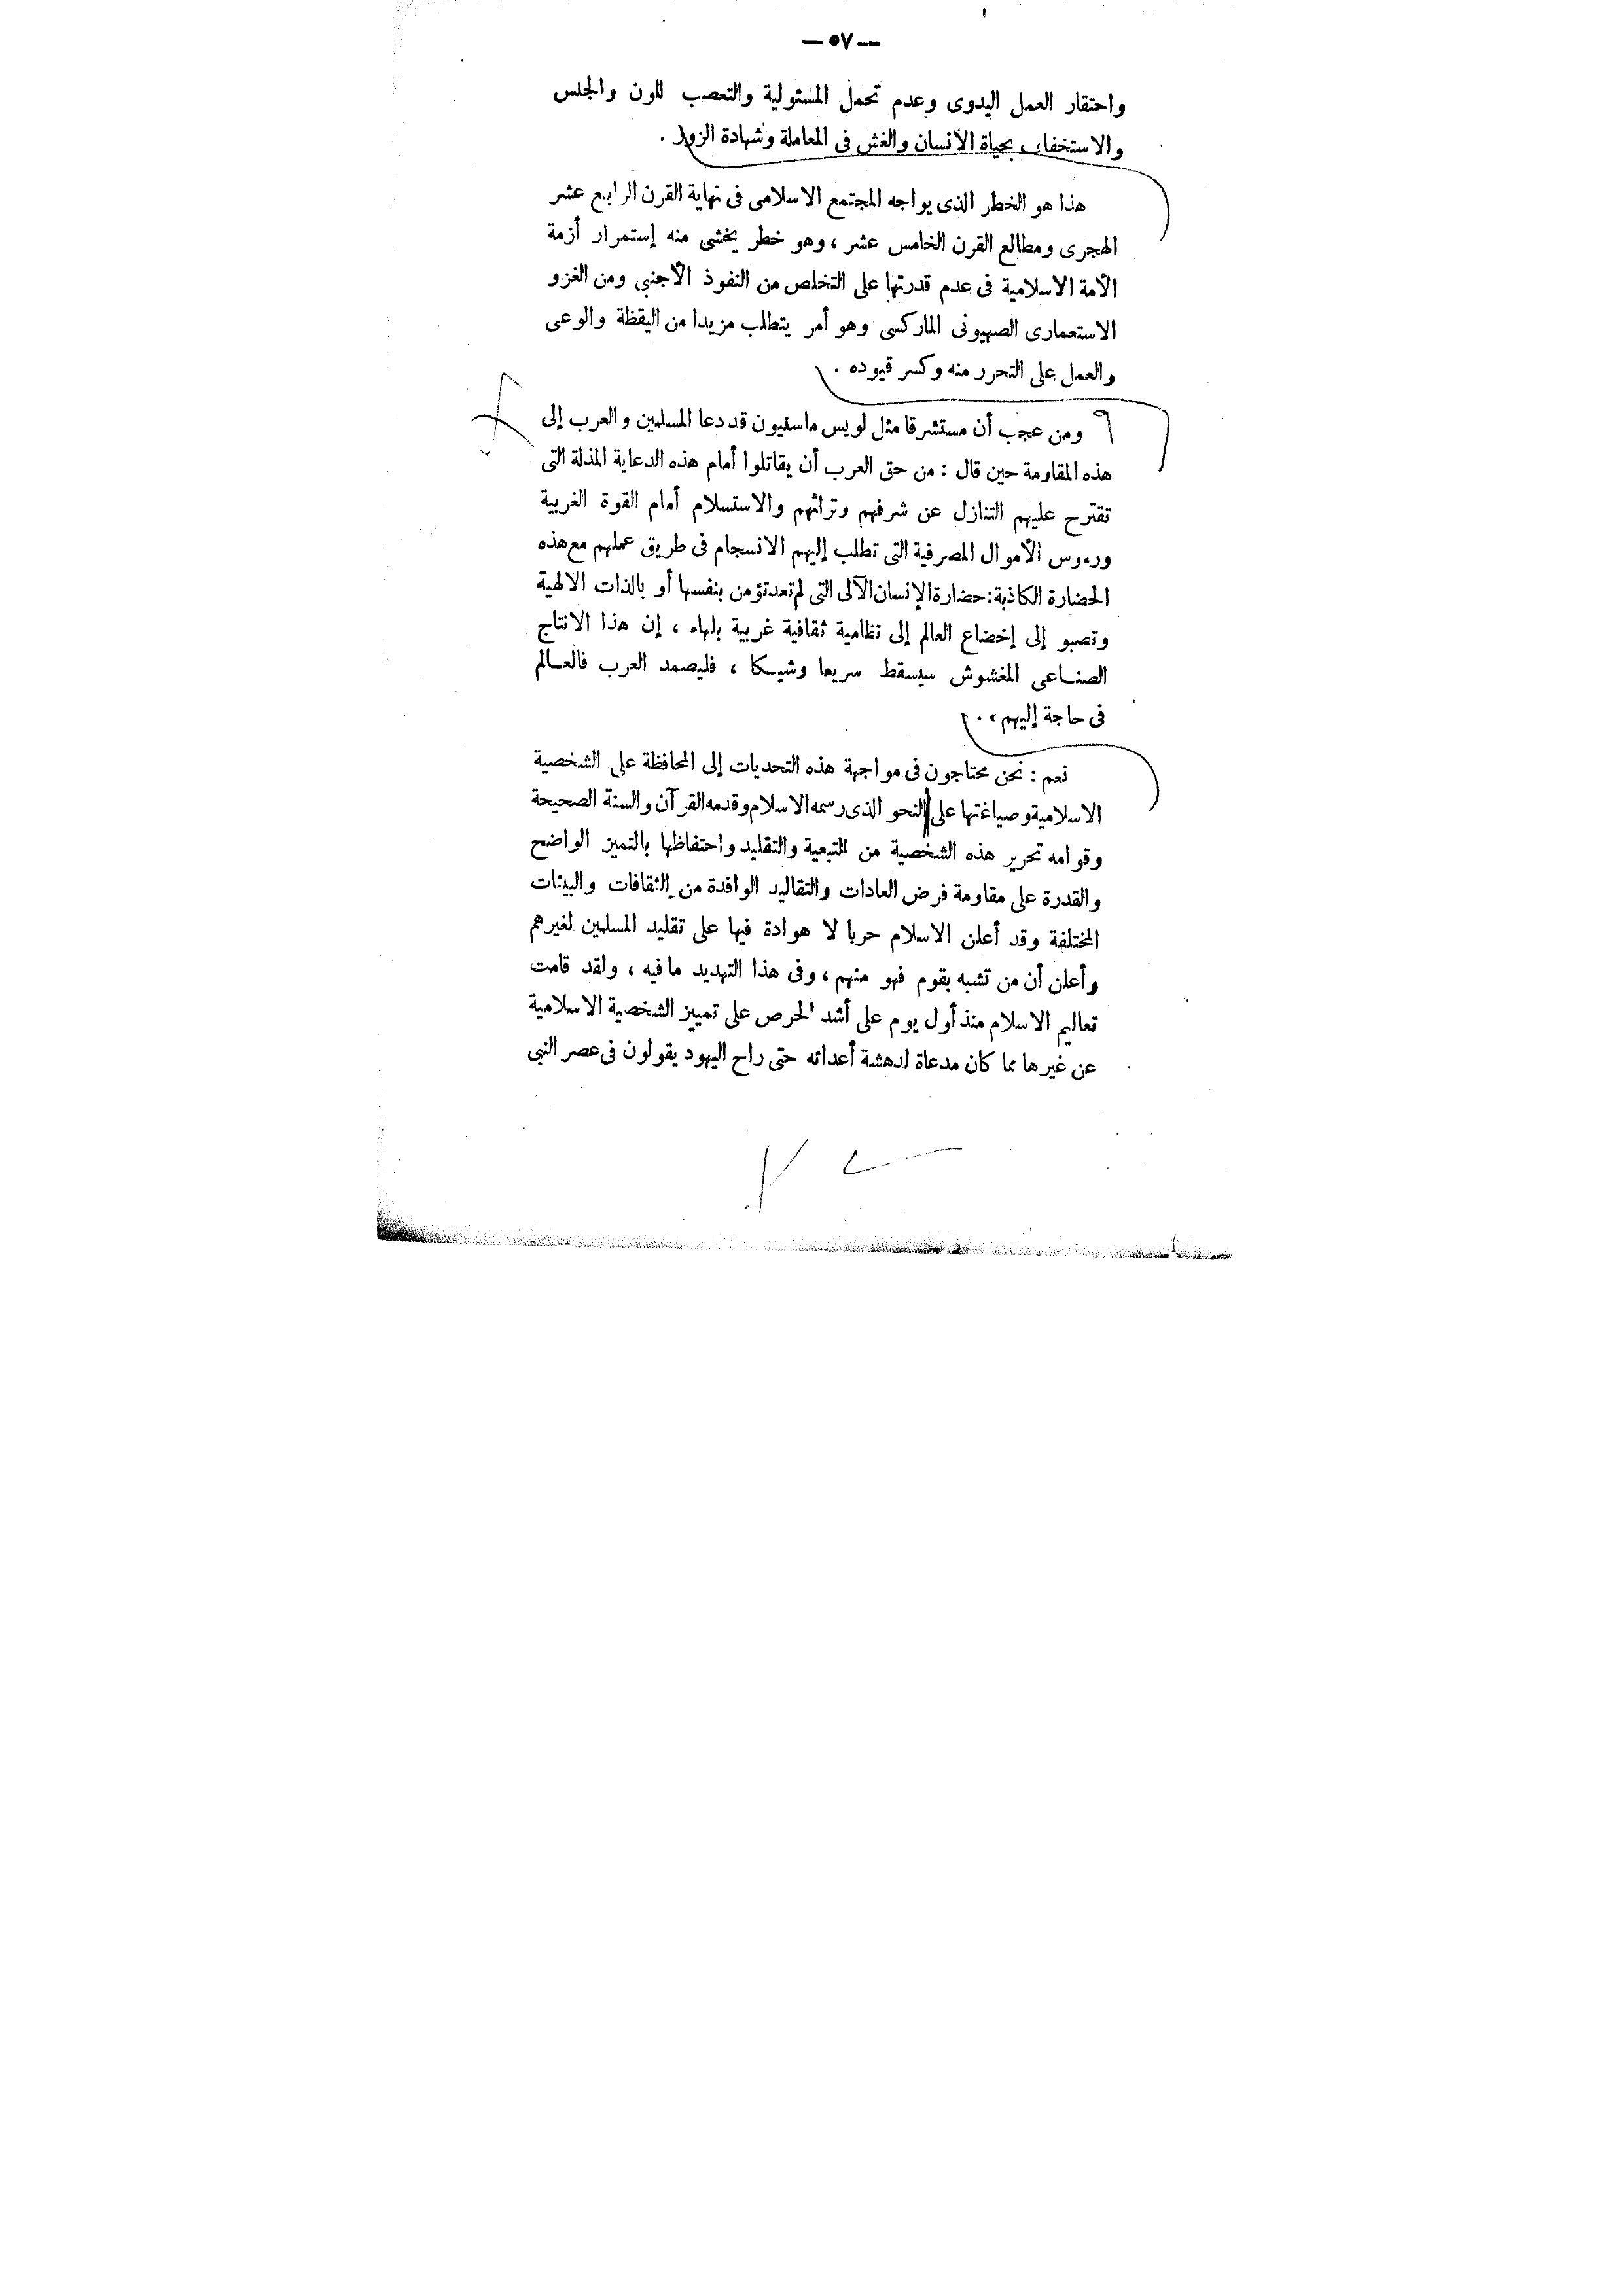 — ٥٧ —
واحتقار العمل اليدوى وعدم تحمل المسئولية والتعصب للون والجنس
والاستخفاف بحياة الأنسان والغش فى المعاملة وشهادة الزور .
هذا هو الخطر الذى يواجه المجتمع الاسلامى فى نهاية القرن الرابع عشر
الهجرى ومطالع القرن الخامس عشر ، وهو خطر يخشى منه إستمرار أزمة
الأمة الاسلامية فى عدم قدرتها على التخلص من النفوذ الأجنبى ومن الغزو
الاستعمارى الصهيونى الماركسى وهو أمر يتطلب مزيدا من اليقظة والوعى
والعمل على التحرر منه وكسر قيوده .
ومن عجب أن مستشرقا مثل لويس ماسنيون قد دعا المسلمين والعرب إلى
هذه المقاومة حين قال : من حق العرب أن يقاتلوا أمام هذه الدعاية المذلة التى
تقترح عليهم التنازل عن شرفهم وتراثهم والاستسلام أمام القوة الغربية
ورءوس الأموال المصرفية التى تطلب إليهم الانسجام فى طريق عملهم مع هذه
الحضارة الكاذبة : حضارة الإنسان الآلى التى لم تعد تؤمن بنفسها أو بالذات الالهية
وتصبو إلى إخضاع العالم إلى نظامية ثقافية غربية بلهاء ، إن هذا الانتاج
الصنـاعى المغشوش سيسقط سريعا وشيـكا ، فليصمد العرب فالعـالم
فى حاجة إليهم » .
نعم : نحن محتاجون فى مواجهة هذه التحديات إلى المحافظة على الشخصية
الاسلامية وصياغتها على النحو الذى رسمه الاسلام وقدمه القرآن والسنة الصحيحة
وقوامه تحرير هذه الشخصية من التبعية والتقليد واحتفاظها بالتميز الواضح
والقدرة على مقاومة فرض العادات والتقاليد الوافدة من الثقافات والبيئات
المختلفة وقد أعلن الاسلام حربا لا هوادة فيها على تقليد المسلمين لغيرهم
وأعلن أن من تشبه بقوم فهو منهم ، وفى هذا التهديد ما فيه ، ولقد قامت
تعاليم الاسلام منذ أول يوم على أشد الحرص على تمييز الشخصية الاسلامية
عن غيرها مما كان مدعاة لدهشة أعدائه حتى راح اليهود يقولون فى عصر النبى